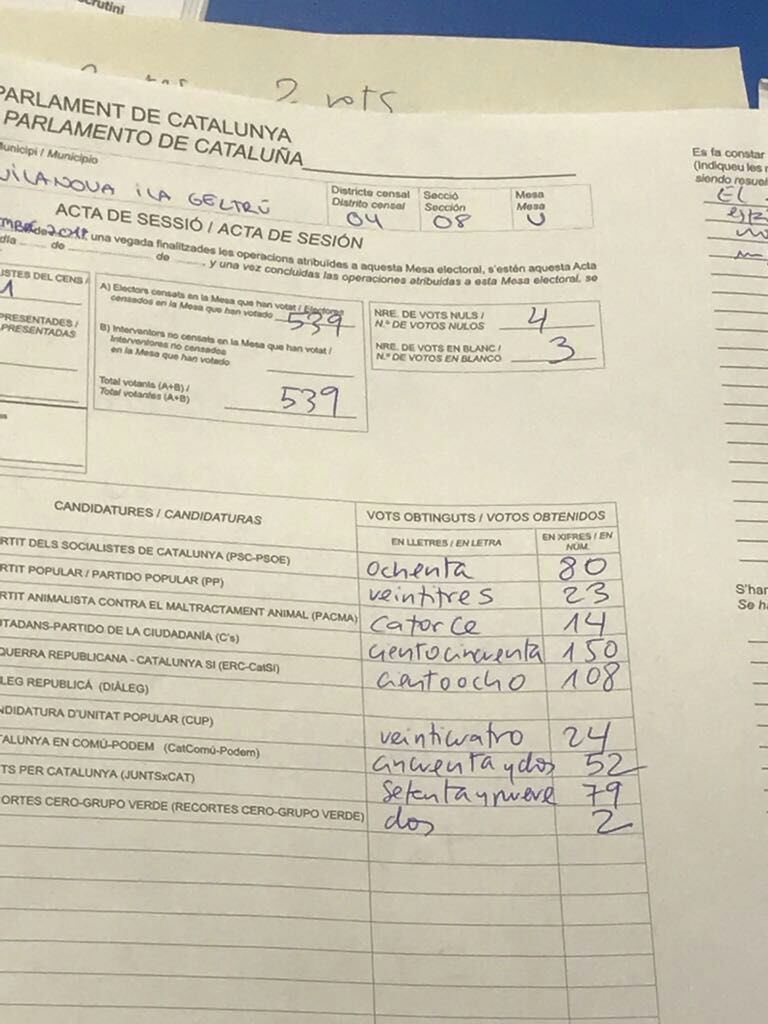 rutini
2 vots
PARLAMENT DE CATALUNYA
PARLAMENTO DE CATALUÑA
Municipi / Municipio
VILANOVA i LA GELTRÚ
Districte censal
Distrito censal
04
Secció
Sección
08
Mesa
Mesa
U
ACTA DE SESSIÓ / ACTA DE SESIÓN
una vegada finalitzades les operacions atribuïdes a aquesta Mesa electoral, s'estén aquesta Acta
día ........ de ........................ de ........, y una vez concluidas las operaciones atribuidas a esta Mesa electoral, se
ISTES DEL CENS /
1
PRESENTADES /
PRESENTADAS
A) Electors censats en la Mesa que han votat / Electores
censados en la Mesa que han votado
539
B) Interventors no censats en la Mesa que han votat /
Interventores no censados
en la Mesa que han votado
Total votants (A+B) /
Total votantes (A+B)
539
NRE. DE VOTS NULS /
N.º DE VOTOS NULOS
4
NRE. DE VOTS EN BLANC /
N.º DE VOTOS EN BLANCO
3
CANDIDATURES / CANDIDATURAS
VOTS OBTINGUTS / VOTOS OBTENIDOS
EN LLETRES / EN LETRA
EN XIFRES / EN NÚM.
RTIT DELS SOCIALISTES DE CATALUNYA (PSC-PSOE) ochenta 80
RTIT POPULAR / PARTIDO POPULAR (PP) veintitres 23
RTIT ANIMALISTA CONTRA EL MALTRACTAMENT ANIMAL (PACMA) catorce 14
UTADANS-PARTIDO DE LA CIUDADANÍA (C's) cientocincuenta 150
QUERRA REPUBLICANA - CATALUNYA SI (ERC-CatSí) cientoocho 108
LEG REPUBLICÁ (DIÀLEG)
NDIDATURA D'UNITAT POPULAR (CUP) veinticuatro 24
ALUNYA EN COMÚ-PODEM (CatComú-Podem) cincuenta y dos 52
TS PER CATALUNYA (JUNTSxCAT) Setenta y nueve 79
ORTES CERO-GRUPO VERDE (RECORTES CERO-GRUPO VERDE) dos 2
Es fa constar
(Indiqueu les r
siendo resuel
El
S'har
Se ha